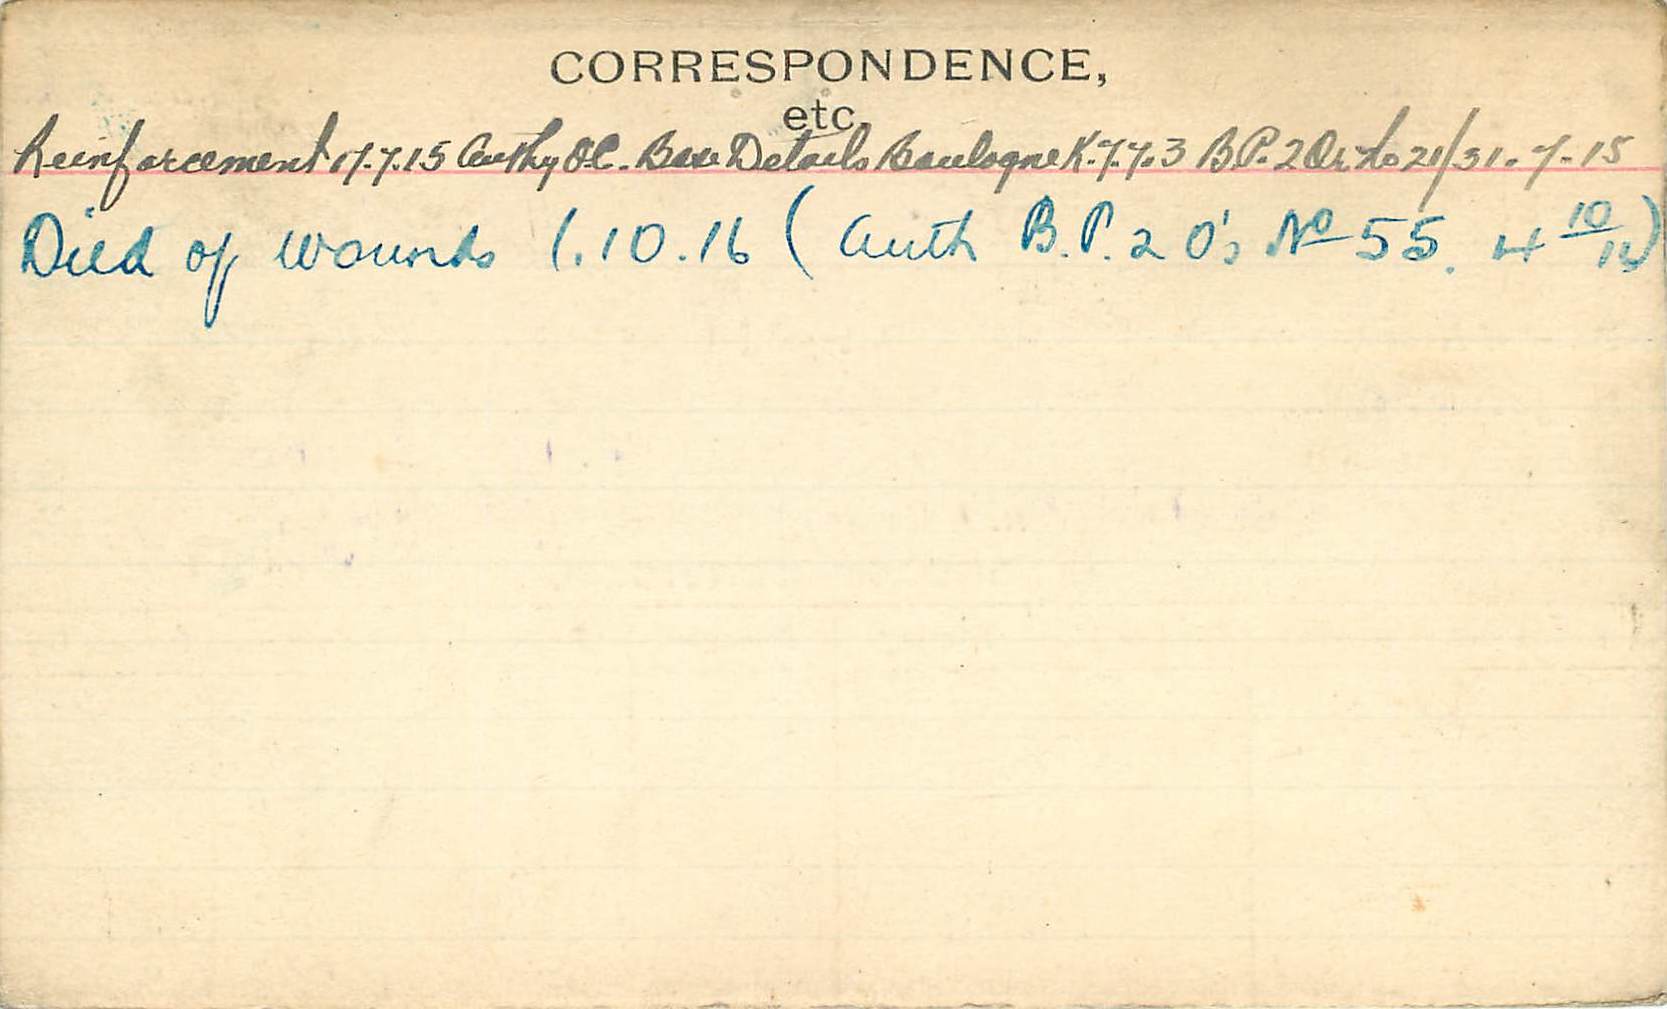 CORRESPONDENCE,
etc.
Reinforcement 17.7.15 Authy O.C. Base Details Boulogne K.7.7.3 B.P. 2 Or No 21/31.7.15
Died of wounds 1.10.16 (Auth B.P. 2 O's No 55. 4 10/16)